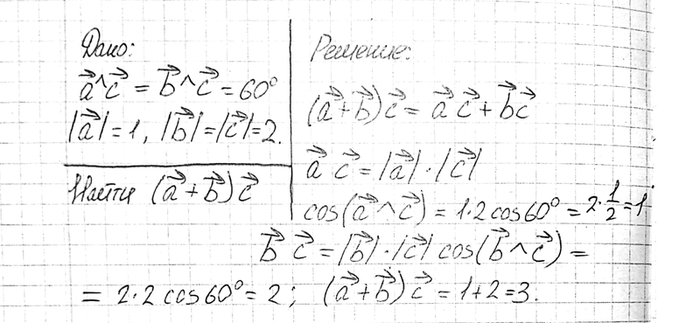 Дано:
a⃗^c⃗ = b⃗^c⃗ = 60°
|a⃗| = 1, |b⃗| = |c⃗| = 2.
Найти (a⃗ + b⃗) c⃗
Решение:
(a⃗ + b⃗) c⃗ = a⃗ c⃗ + b⃗ c⃗
a⃗ c⃗ = |a⃗| · |c⃗|
cos(a⃗ ^ c⃗) = 1·2 cos 60° = 2·1/2 = 1
b⃗ c⃗ = |b⃗| · |c⃗| cos(b⃗ ^ c⃗) =
= 2·2 cos 60° = 2; (a⃗ + b⃗) c⃗ = 1+2=3.